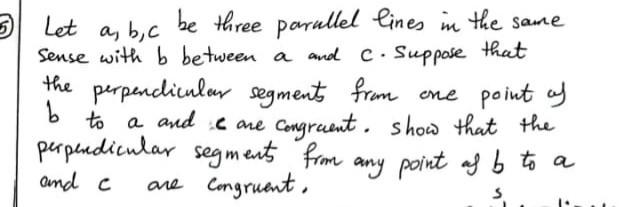 5) Let a, b, c be three parallel lines in the same
sense with b between a and c. Suppose that
the perpendicular segments from one point of
b to a and c are congruent. show that the
perpendicular segments from any point of b to a
and c are congruent.